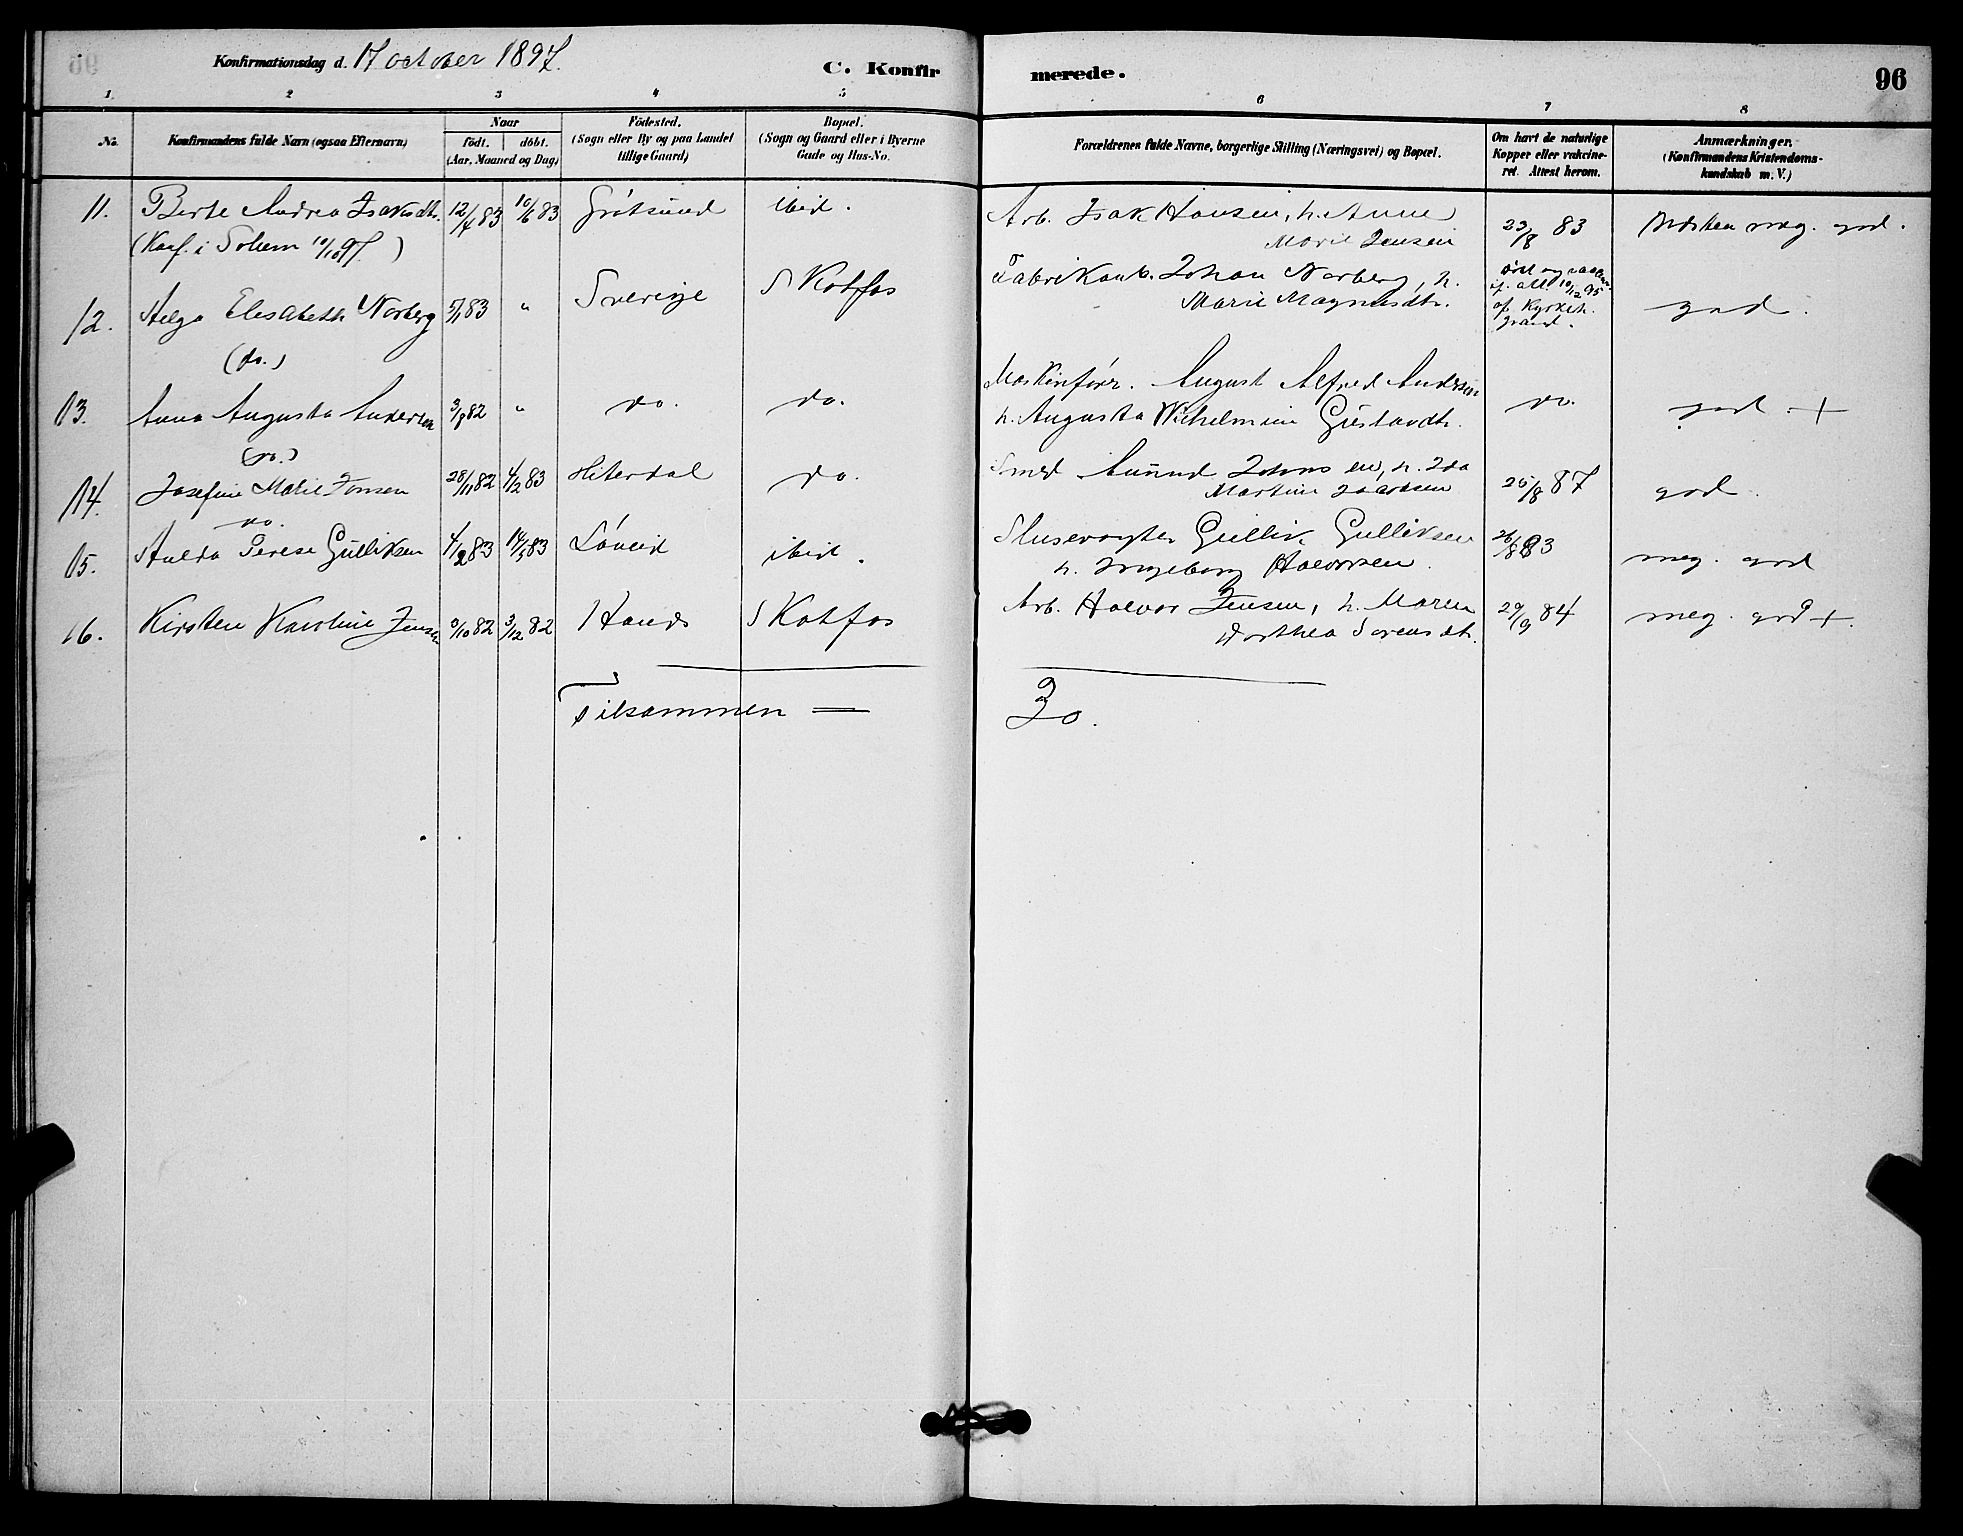 Konfirmationsdag d. 17 october 1897.
C. Konfir
merede.
96
1. 2 3 4 5 6 7 8
No.
Konfirmandens fulde Navn (ogsaa Efternavn)
Naar
födt. döbt.
(Aar, Maaned og Dag)
Födested.
(Sogn eller By og paa Landet
tillige Gaard)
Bopæl.
(Sogn og Gaard eller i Byerne
Gade og Hus-No.
Forældrenes fulde Navne, borgerlige Stilling (Næringsvei) og Bopæl.
Om havt de naturlige
Kopper eller vakcine-
ret. Attest herom.
Anmærkninger.
(Konfirmandens Kristendoms-
kundskab m. V.)
11. Berte Andrea Isaksdt. 12/4 83 10/6 83 Grótsund ibid. Arb. Isak Hansen, h. Anne 23/8 83 Næsten meg. god.
(Konf. i Solum 10/10 97) Marie Jensen
12. Helga Elisabeth Norberg 5/1 83 " Sverige Skotfos Fabrikarb. Johan Norberg, h.
Marie Magnusdtr. god.
(do.)
13. Anna Augusta Andersen 3/8 82 " do. do. Maskinförer. August Alfred Andersen do. god. +
h. Augusta Wilhelmine Gustavdtr.
(do.)
14. Josefine Marie Jonsen 28/11 82 4/2 83 Hiterdal do. Smed Aunund Johnsen, h. Ida 25/8 87 god.
do. Martine
15. Hulda Terese Gulliksen 4/2 83 14/5 83 Lóveid ibid. Slusevogter Gullik Gulliksen 26/8 83 meg. god
h. Ingeborg Halvorsen.
16. Kirsten Karoline Jensen /10 82 3/12 82 Hands Skotfos Arb. Halvor Jensen, h. Maren 29/9 84 meg. god +.
Dorthea Sorensdt.
Tilsammen = 30.